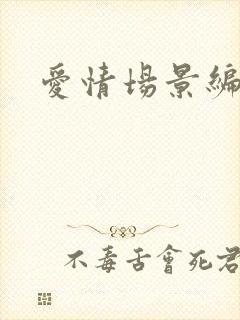 愛情場景編
不毒舌會死君